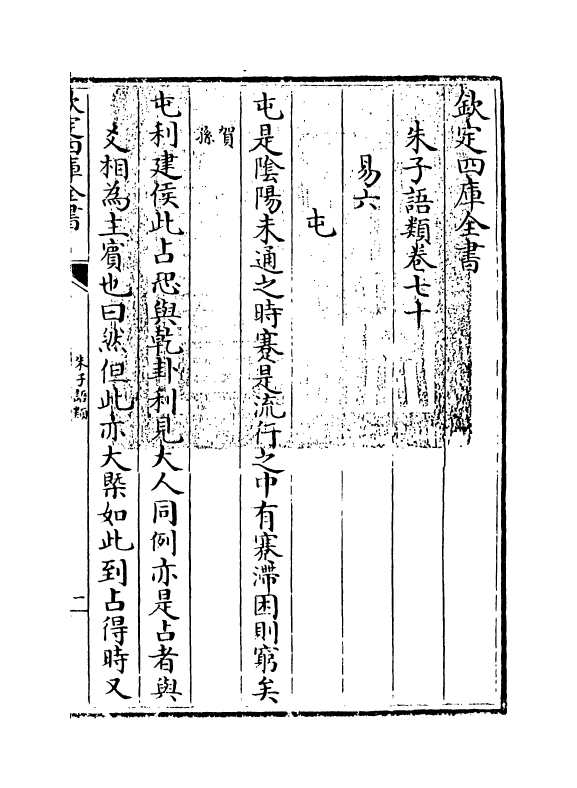 欽定四庫全書
朱子語類卷七十
易六
屯
屯是陰陽未通之時蹇是流行之中有蹇滯困則窮矣
賀孫
屯利建侯此占恐與乾卦利見大人同例亦是占者與
爻相為主賓也曰然但此亦大槩如此到占得時又
欽定四庫全書
朱子語類